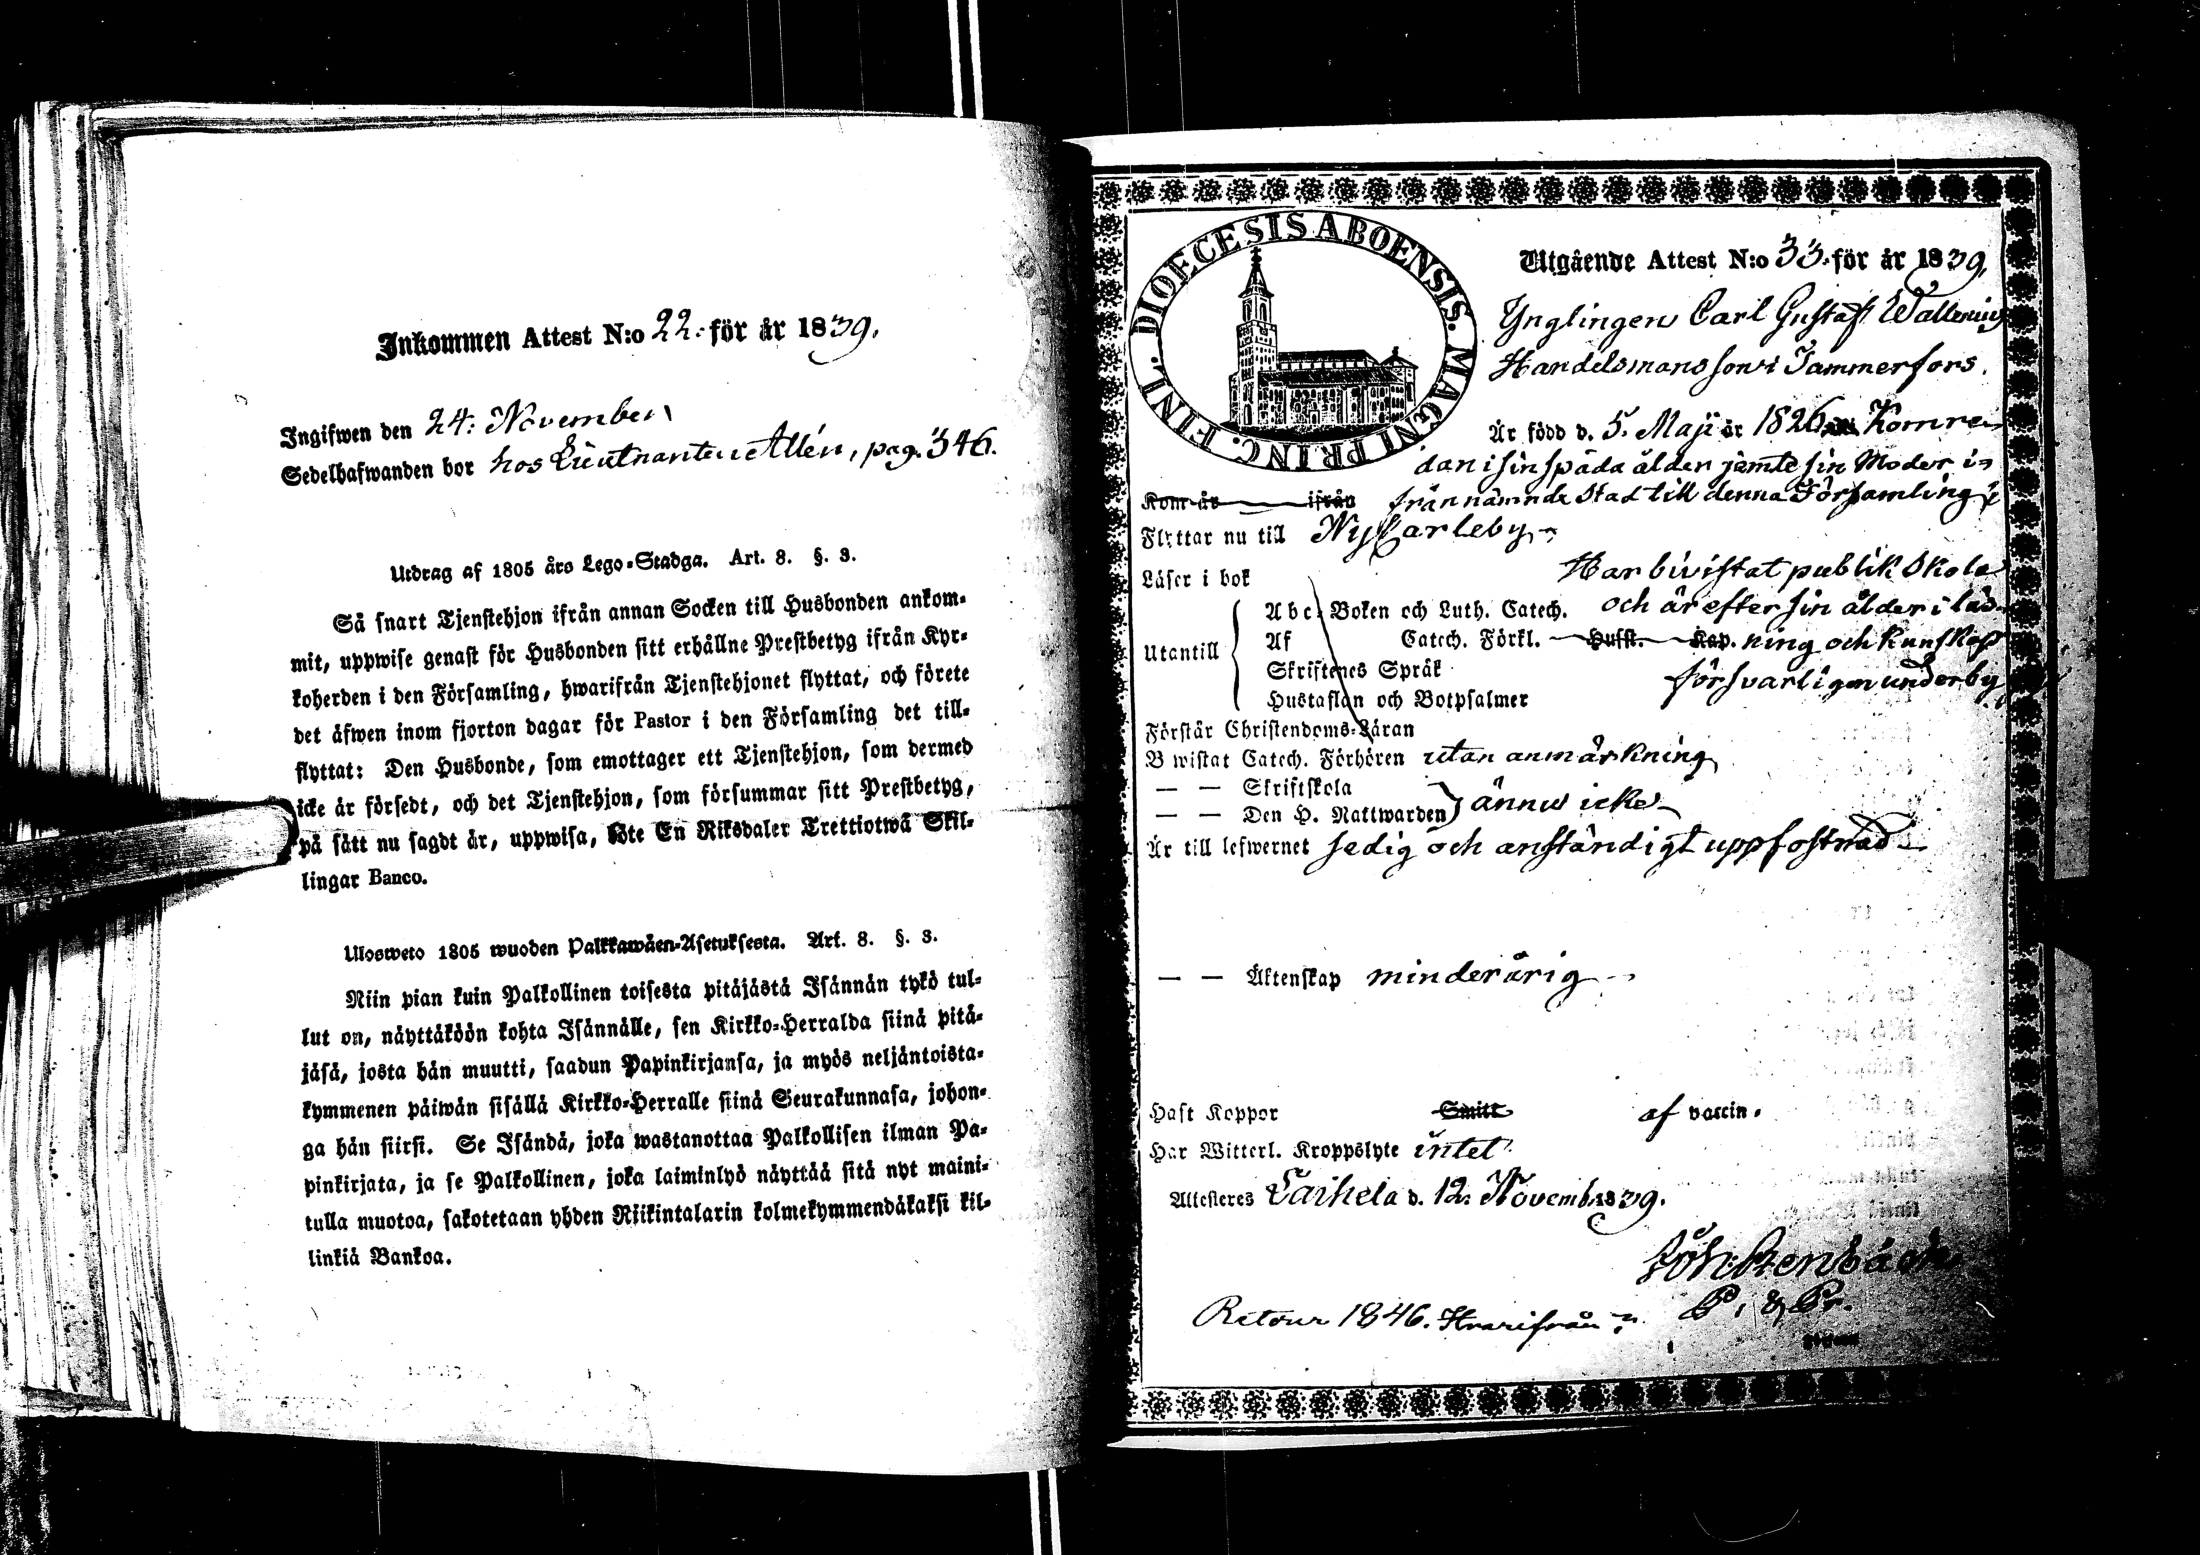 Inkommen Attest N:o 22. för år 1839.
Ingifwen den 24: November
Sedelhafwanden bor hos Lieutnanten Allén, pag. 346.
Utdrag af 1805 års Lego-Stadga. Art. 8. §. 3.
Så snart Tjenstehjon ifrån annan Socken till Husbonden ankom-
mit, uppwise genast för Husbonden sitt erhållne Prestbetyg ifrån Kyr-
koherden i den Församling, hwarifrån Tjenstehjonet flyttat, och förete
det äfwen inom fjorton dagar för Pastor i den Församling det till-
flyttat: Den Husbonde, som emottager ett Tjenstehjon, som dermed
icke är försedt, och det Tjenstehjon, som försummar sitt Prestbetyg,
på sätt nu sagdt är, uppwisa, böte En Riksdaler Trettiotwå Skil-
lingar Banco.
Ulosweto 1805 wuoden Palkkawäen-Asetuksesta. Art. 8. §. 3.
Niin pian kuin Palkollinen toisesta pitäjästä Isännän tykö tul-
lut on, näyttäköön kohta Isännälle, sen Kirkko-Herralda siinä pitä-
jäsä, josta hän muutti, saadun Papinkirjansa, ja myös neljäntoista-
kymmenen päiwän sisällä Kirkko-Herralle siinä Seurakunnasa, johon-
ga hän siirsi. Se Isändä, joka wastanottaa Palkollisen ilman Pa-
pinkirjata, ja se Palkollinen, joka laiminlyö näyttää sitä nyt maini-
tulla muotoa, sakotetaan yhden Riikintalarin kolmekymmendäkaksi kil-
linkiä Bankoa.
FINL. DIOECESIS ABOENSIS. MAGNI PRINC.
Utgående Attest N:o 33. för år 1839.
Ynglingen Carl Gustaf Wallenius
Handelsmans son i Tammerfors.
Är född d. 5. Maji år 1826. Kom re-
dan i sin späda ålder jemte sin Moder i-
Kom år ifrån från nämnde Stad till denna Församling
Flyttar nu till NyCarleby
Läser i bok Har bivistat publik Skola
Utantill Abc-Boken och Luth. Catech. och är efter sin ålder i läs-
Af Catech. Förkl. Hufst. Kap. ning och kunskap
Skriftenes Språk försvarligen underby
Hustaflan och Botpsalmer
Förstår Christendoms-Läran
Bwistat Catech. Förhören utan anmärkning
— — Skriftskola
— — Den H. Nattwarden ännu icke
Är till lefwernet sedig och anständigt uppfostrad
— — Äktenskap minderårig
Haft Koppor Smitt af vaccin.
Har Witterl. Kroppslyte intet
Attesteres Laihela d. 12. Novemb. 1839.
P. & Pr.
Retour 1846. Hvarifrån?